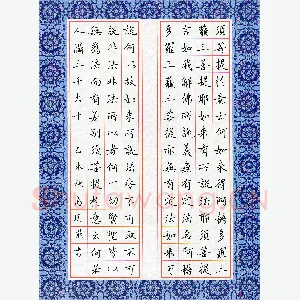 須菩提於意云何如來得阿耨多羅三
藐三菩提耶如來有所說法耶須菩提
言如我解佛所說義無有定法名阿耨
多羅三藐三菩提亦無有定法如來可
說何以故如來所說法皆不可取不可
說非法非非法所以者何一切賢聖皆以
無為法而有差別須菩提於意云何若
人滿三千大千 乙未秋